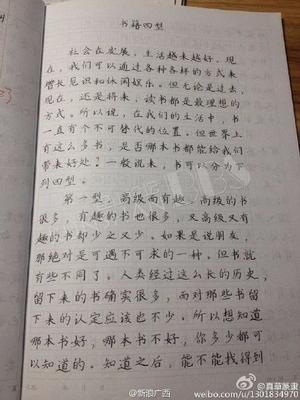 书籍四型
社会在发展，生活越来越好，现
在，我们可以通过各种各样的方式来
增长见识和休闲娱乐。但无论是过去，
现在，还是将来，读书都是最理想的
方式。所以说，在我们的生活中，书
一直有个不可替代的位置。但世界上
有这么多书，是否哪本书都能给我们
带来好处？一般说来，书可以分为下
列四型。
第一型，高级而有趣，高级的书
很多，有趣的书也很多，又高级又有
趣的书却少之又少。如果是说朋友，
那绝对是可遇不可求的一种，但书就
有些不同了。人类经过这么长的历史，
留下来的书确实很多，而对那些书留
下来的认定应该也不少。所以想知道
哪本书好，哪本书不好，你多少都可
以知道的。知道之后，能不能找得到
@新浪广西
@真草篆隶
weibo.com/u/1301834970